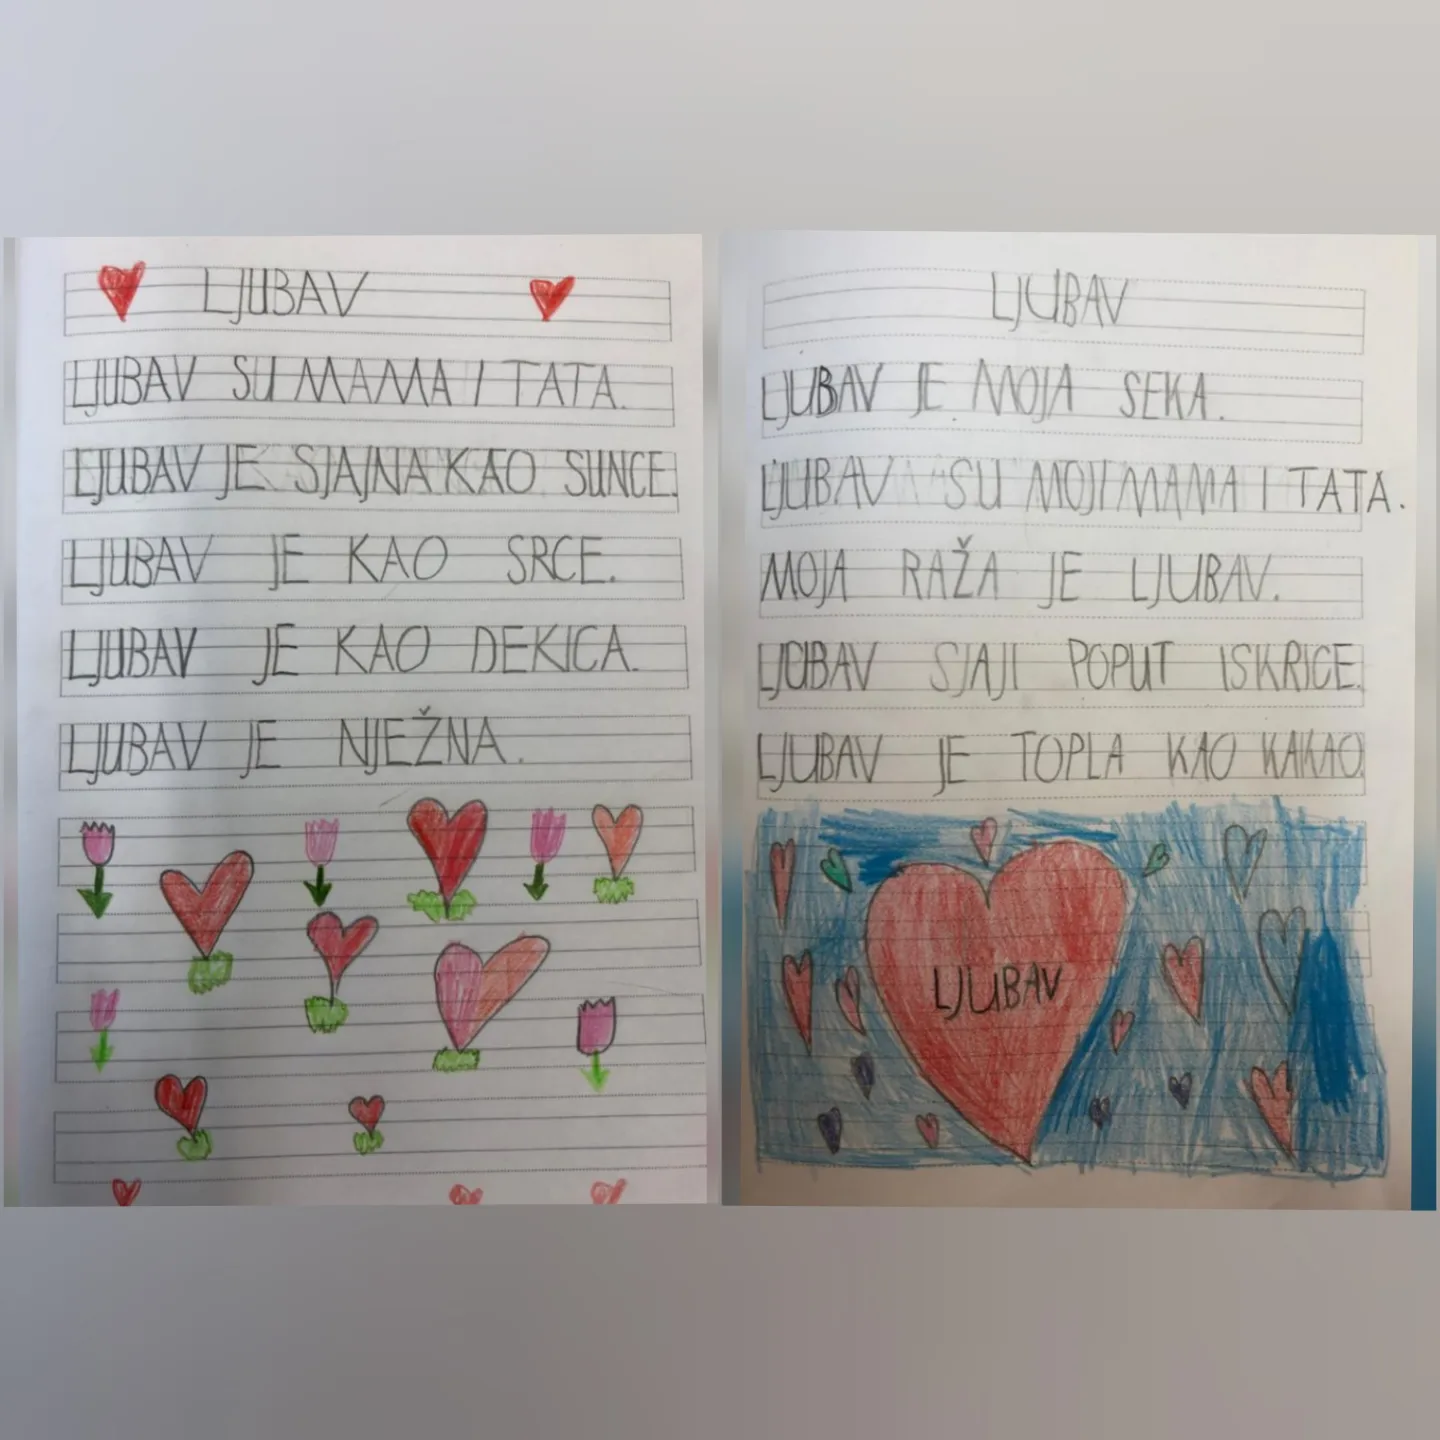 LJUBAV
LJUBAV SU MAMA I TATA.
LJUBAV JE SJAJNA KAO SUNCE.
LJUBAV JE KAO SRCE.
LJUBAV JE KAO DEKICA.
LJUBAV JE NJEŽNA.
LJUBAV
LJUBAV JE MOJA SEKA.
LJUBAV SU MOJI MAMA I TATA.
MOJA RAŽA JE LJUBAV.
LJUBAV SJAJI POPUT ISKRICE.
LJUBAV JE TOPLA KAO KAKAO.
LJUBAV